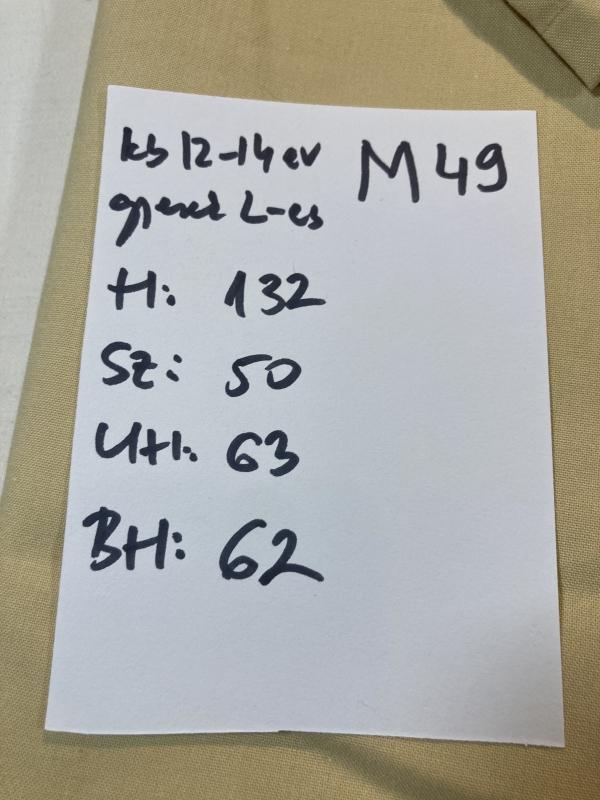 kb 12-14 ev
M49
gyerek L-es
H: 132
Sz: 50
UH: 63
BH: 62